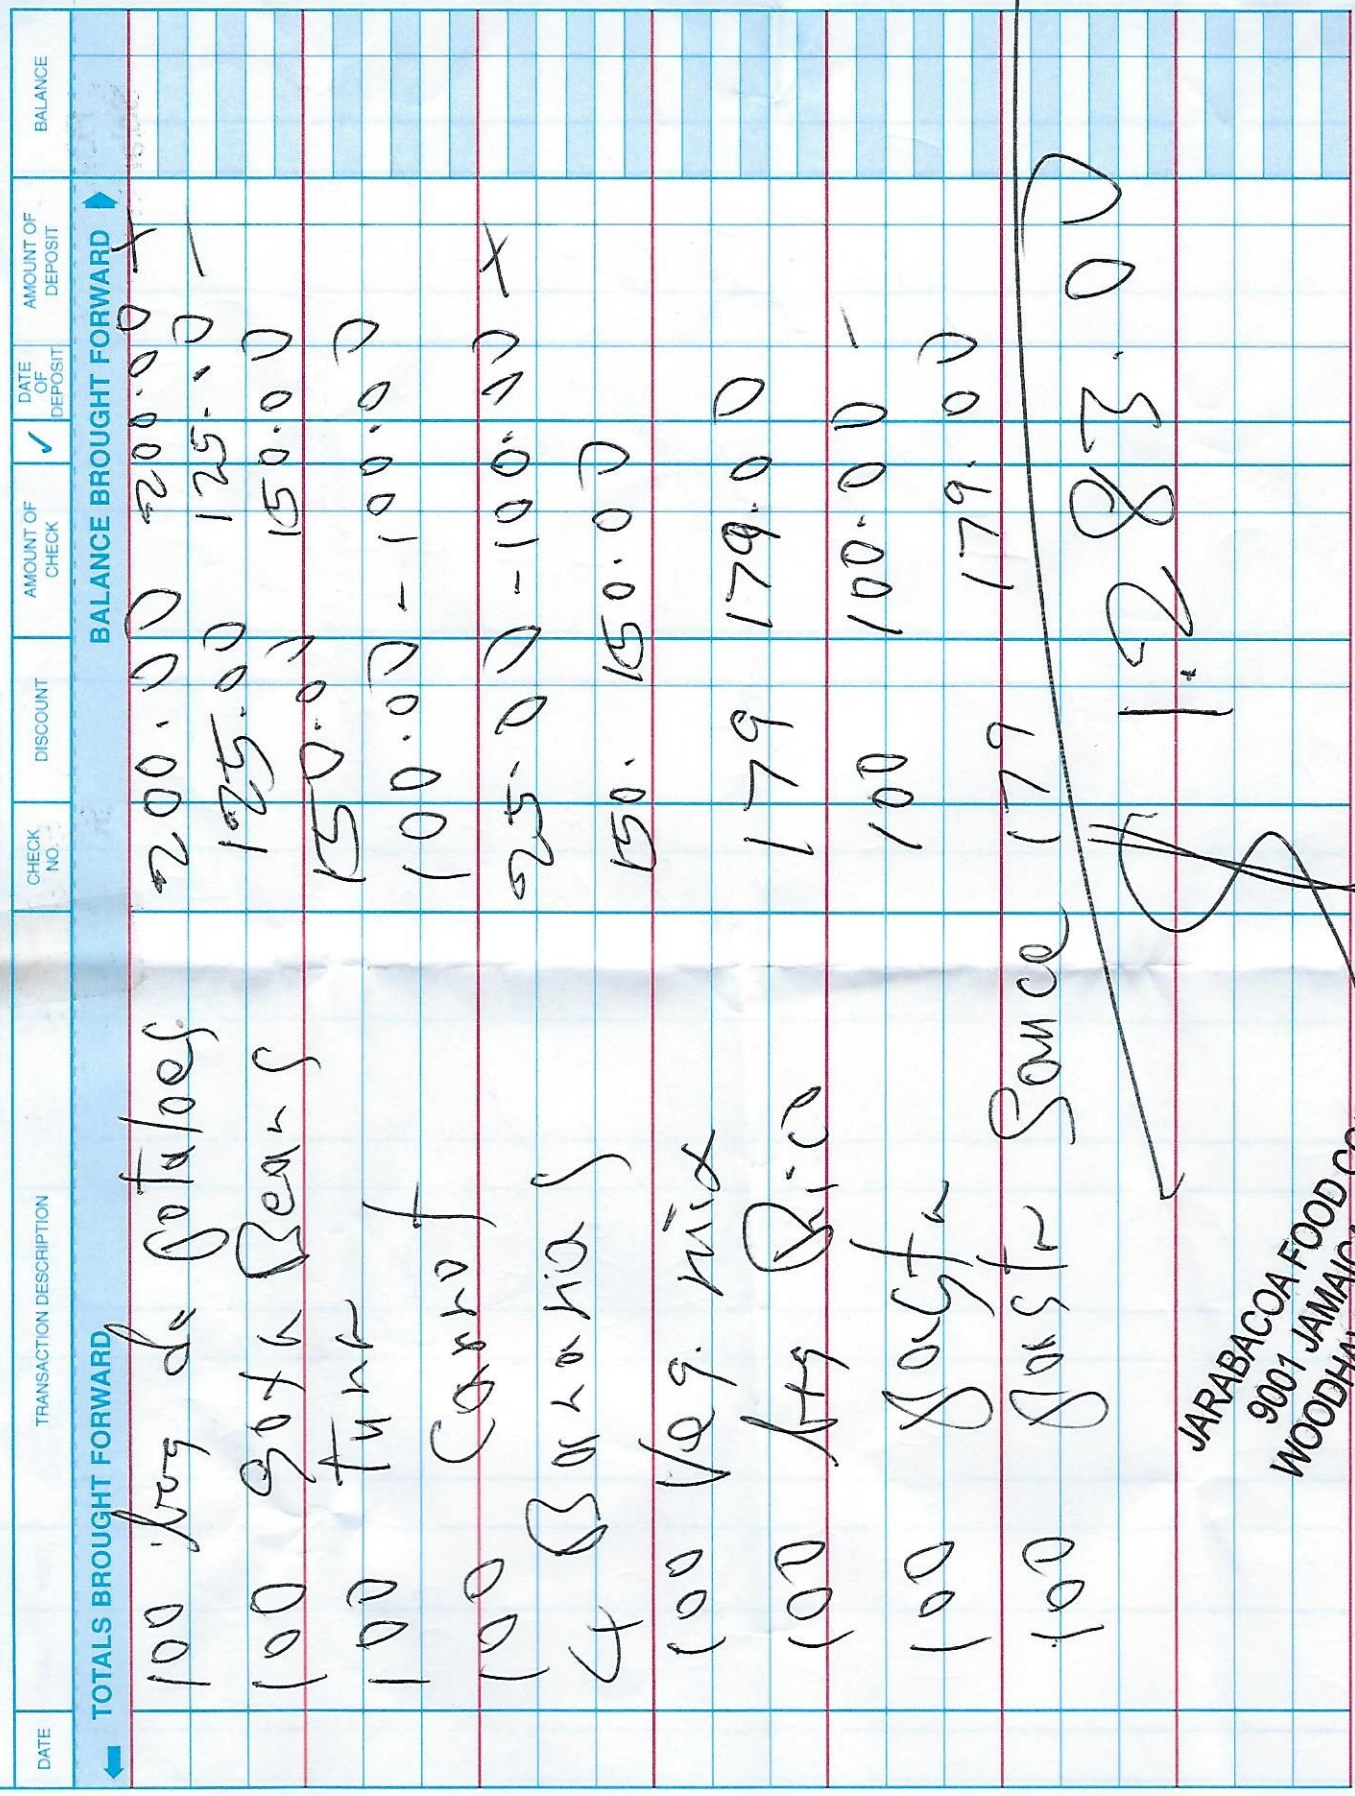 DATE TRANSACTION DESCRIPTION CHECK NO. DISCOUNT AMOUNT OF CHECK ✓ DATE OF DEPOSIT AMOUNT OF DEPOSIT BALANCE
TOTALS BROUGHT FORWARD BALANCE BROUGHT FORWARD
100 bag de Potatoes 200.00 200.00 x
100 Beans 125.00 125.00 -
100 tuna 150.00 150.00
100 Carrot 100.00 - 100.00
4 Bananas 25.00 - 100.00 x
100 Veg. mix 150. 150.00
100 Rice 179 179.00
100 Pasta 100 100.00 -
100 Pasta Sauce 179 179.00
1.283.00
JARABACOA FOOD CO
9001 JAMAICA
WOODHA